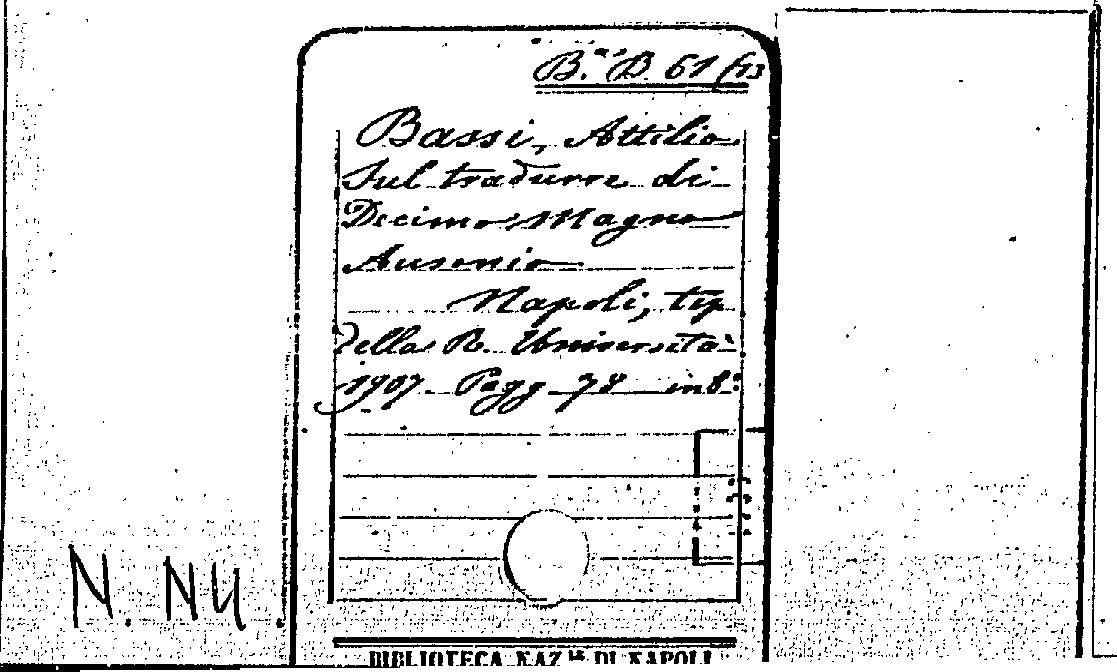 B.ª D. 61 (13
Bassi, Attilio
Sul tradurre di
Decimo Magno
Ausonio
Napoli, tip
della R. Università
1907 Pagg 78 in 8.º
N. NU.
BIBLIOTECA NAZ.LE DI NAPOLI